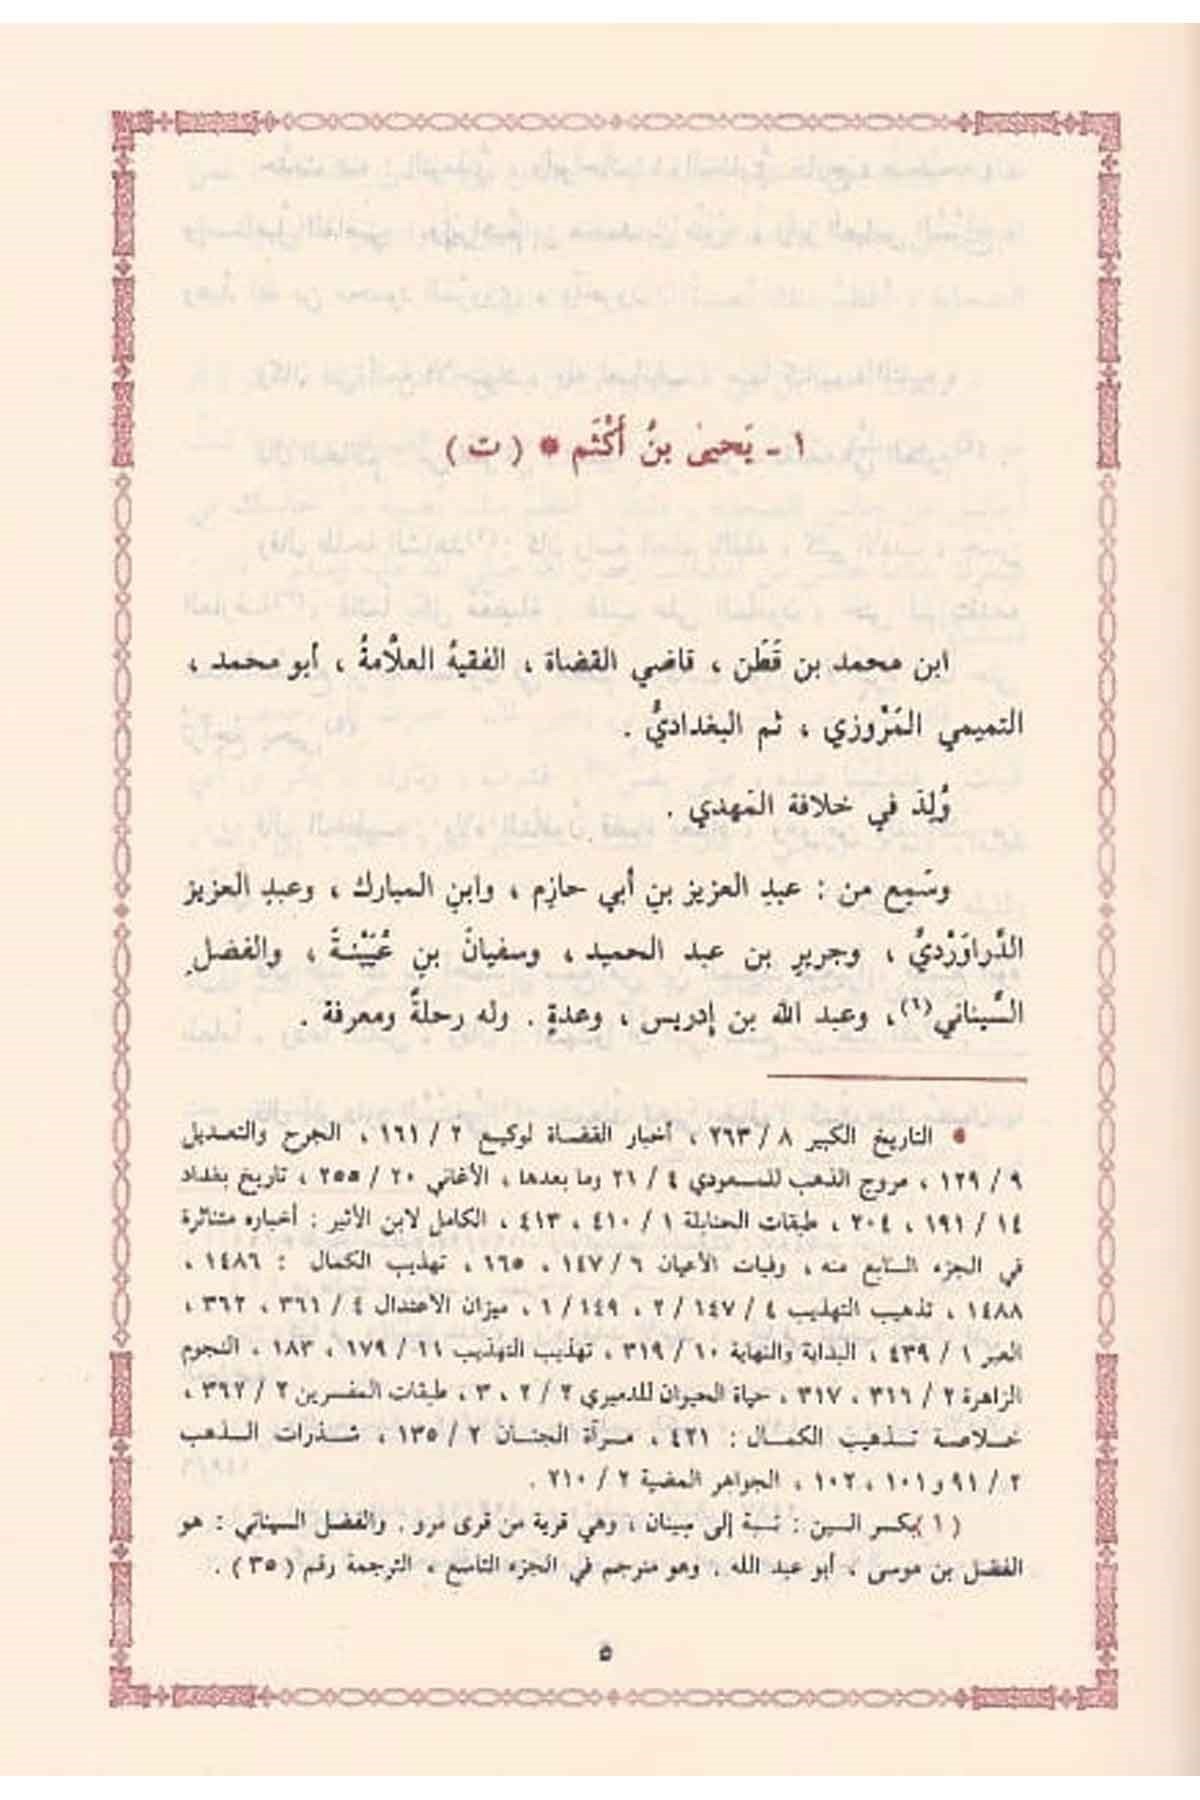 ١ - يَحيىٰ بنُ أَكْثَم * ( ت )
ابن محمد بن قَطَن ، قاضي القضاة ، الفقيهُ العلَّامةُ ، أبو محمد ،
التميمي المَرْوزي ، ثم البغداديُّ .
وُلِدَ في خلافة المَهدي .
وسَمِع من : عبدِ العزيز بنِ أبي حازِم ، وابنِ المبارك ، وعبدِ العزيز
الدَّراوَرْديِّ ، وجريرِ بن عبد الحميد ، وسفيانَ بنِ عُيَيْنةَ ، والفضل
السِّيناني(١)، وعبد الله بن إدريس ، وعدةٍ . وله رحلةٌ ومعرفة .
* التاريخ الكبير ٨ / ٢٦٣ ، أخبار القضاة لوكيع ٢ / ١٦١ ، الجرح والتعديل
٩ / ١٢٩ ، مروج الذهب للمسعودي ٤ / ٢١ وما بعدها ، الأغاني ٢٠ / ٢٥٥ ، تاريخ بغداد
١٤ / ١٩١ ، ٢٠٤ ، طبقات الحنابلة ١ / ٤١٠ ، ٤١٣ ، الكامل لابن الأثير : أخباره متناثرة
في الجزء السابع منه ، وفيات الأعيان ٦ / ١٤٧ ، ١٦٥ ، تهذيب الكمال : ١٤٨٦ ،
١٤٨٨ ، تذهيب التهذيب ٤ / ١٤٧ / ٢ ، ١٤٩ / ١ ، ميزان الاعتدال ٤ / ٣٦١ ، ٣٦٢ ،
العبر ١ / ٤٣٩ ، البداية والنهاية ١٠ / ٣١٩ ، تهذيب التهذيب ١١ / ١٧٩ ، ١٨٣ ، النجوم
الزاهرة ٢ / ٣١٦ ، ٣١٧ ، حياة الحيوان للدميري ٢ / ٢ ، ٣ ، طبقات المفسرين ٢ / ٣٦٢ ،
خلاصة تذهيب الكمال : ٤٢١ ، مرآة الجنان ٢ / ١٣٥ ، شذرات الذهب
٢ / ٩١ و ١٠١ ، ١٠٢ ، الجواهر المضية ٢ / ٢١٠ .
( ١ ) بكسر السين : نسبة إلى سينان ، وهي قرية من قرى مرو . والفضل السيناني : هو
الفضل بن موسى ، أبو عبد الله . وهو مترجم في الجزء التاسع ، الترجمة رقم ( ٣٥ ) .
٥